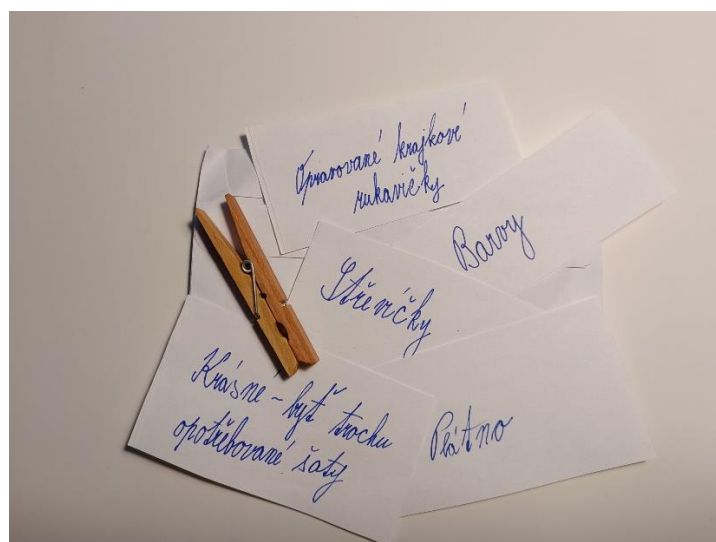 Opravované krajkové
rukavičky
Barvy
Střevíčky
Krásne - byť trochu
opotřebované šaty
Plátno